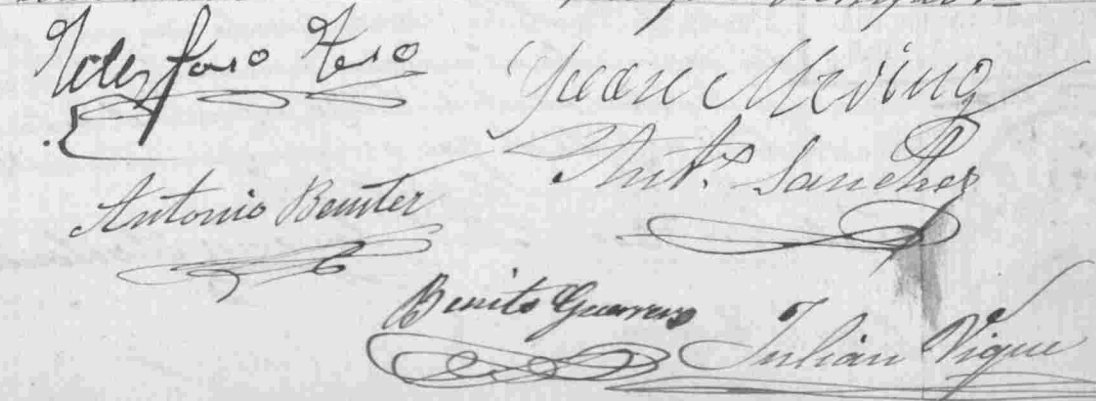 Ildefonso
Juan Merino
Ant.º Sanchez
Antonio Benitez
Benito Guerrero
Julián Vique